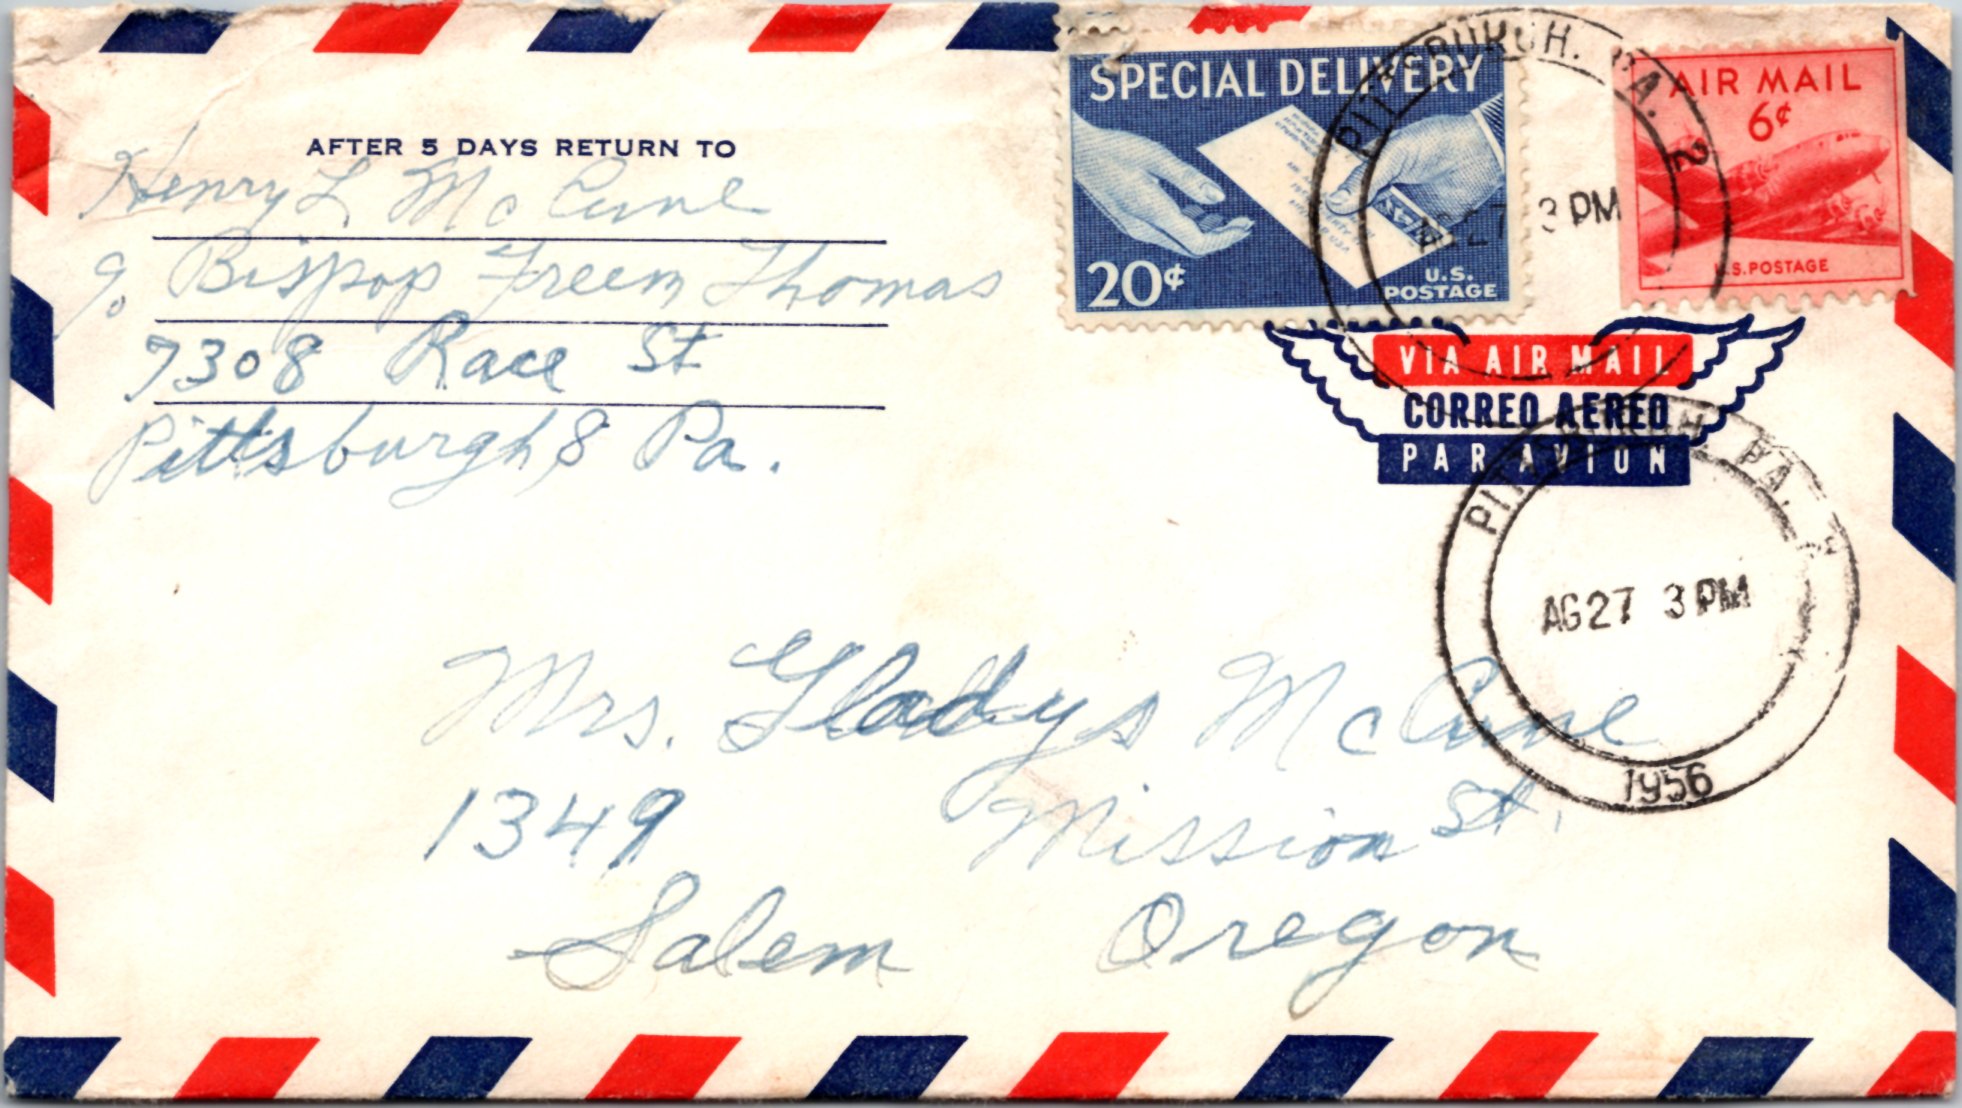 AFTER 5 DAYS RETURN TO
Henry L McCune
% Bispop Freem Thomas
7308 Race St
Pittsburgh 8 Pa.
SPECIAL DELIVERY
20¢
U.S.
POSTAGE
AIR MAIL
6¢
U.S. POSTAGE
PITTSBURGH, PA. 2
AG27 3 PM
VIA AIR MAIL
CORREO AEREO
PAR AVION
PITTSBURGH, PA.
AG27 3 PM
1956
Mrs. Gladys McCune
1349 Mission St.
Salem Oregon